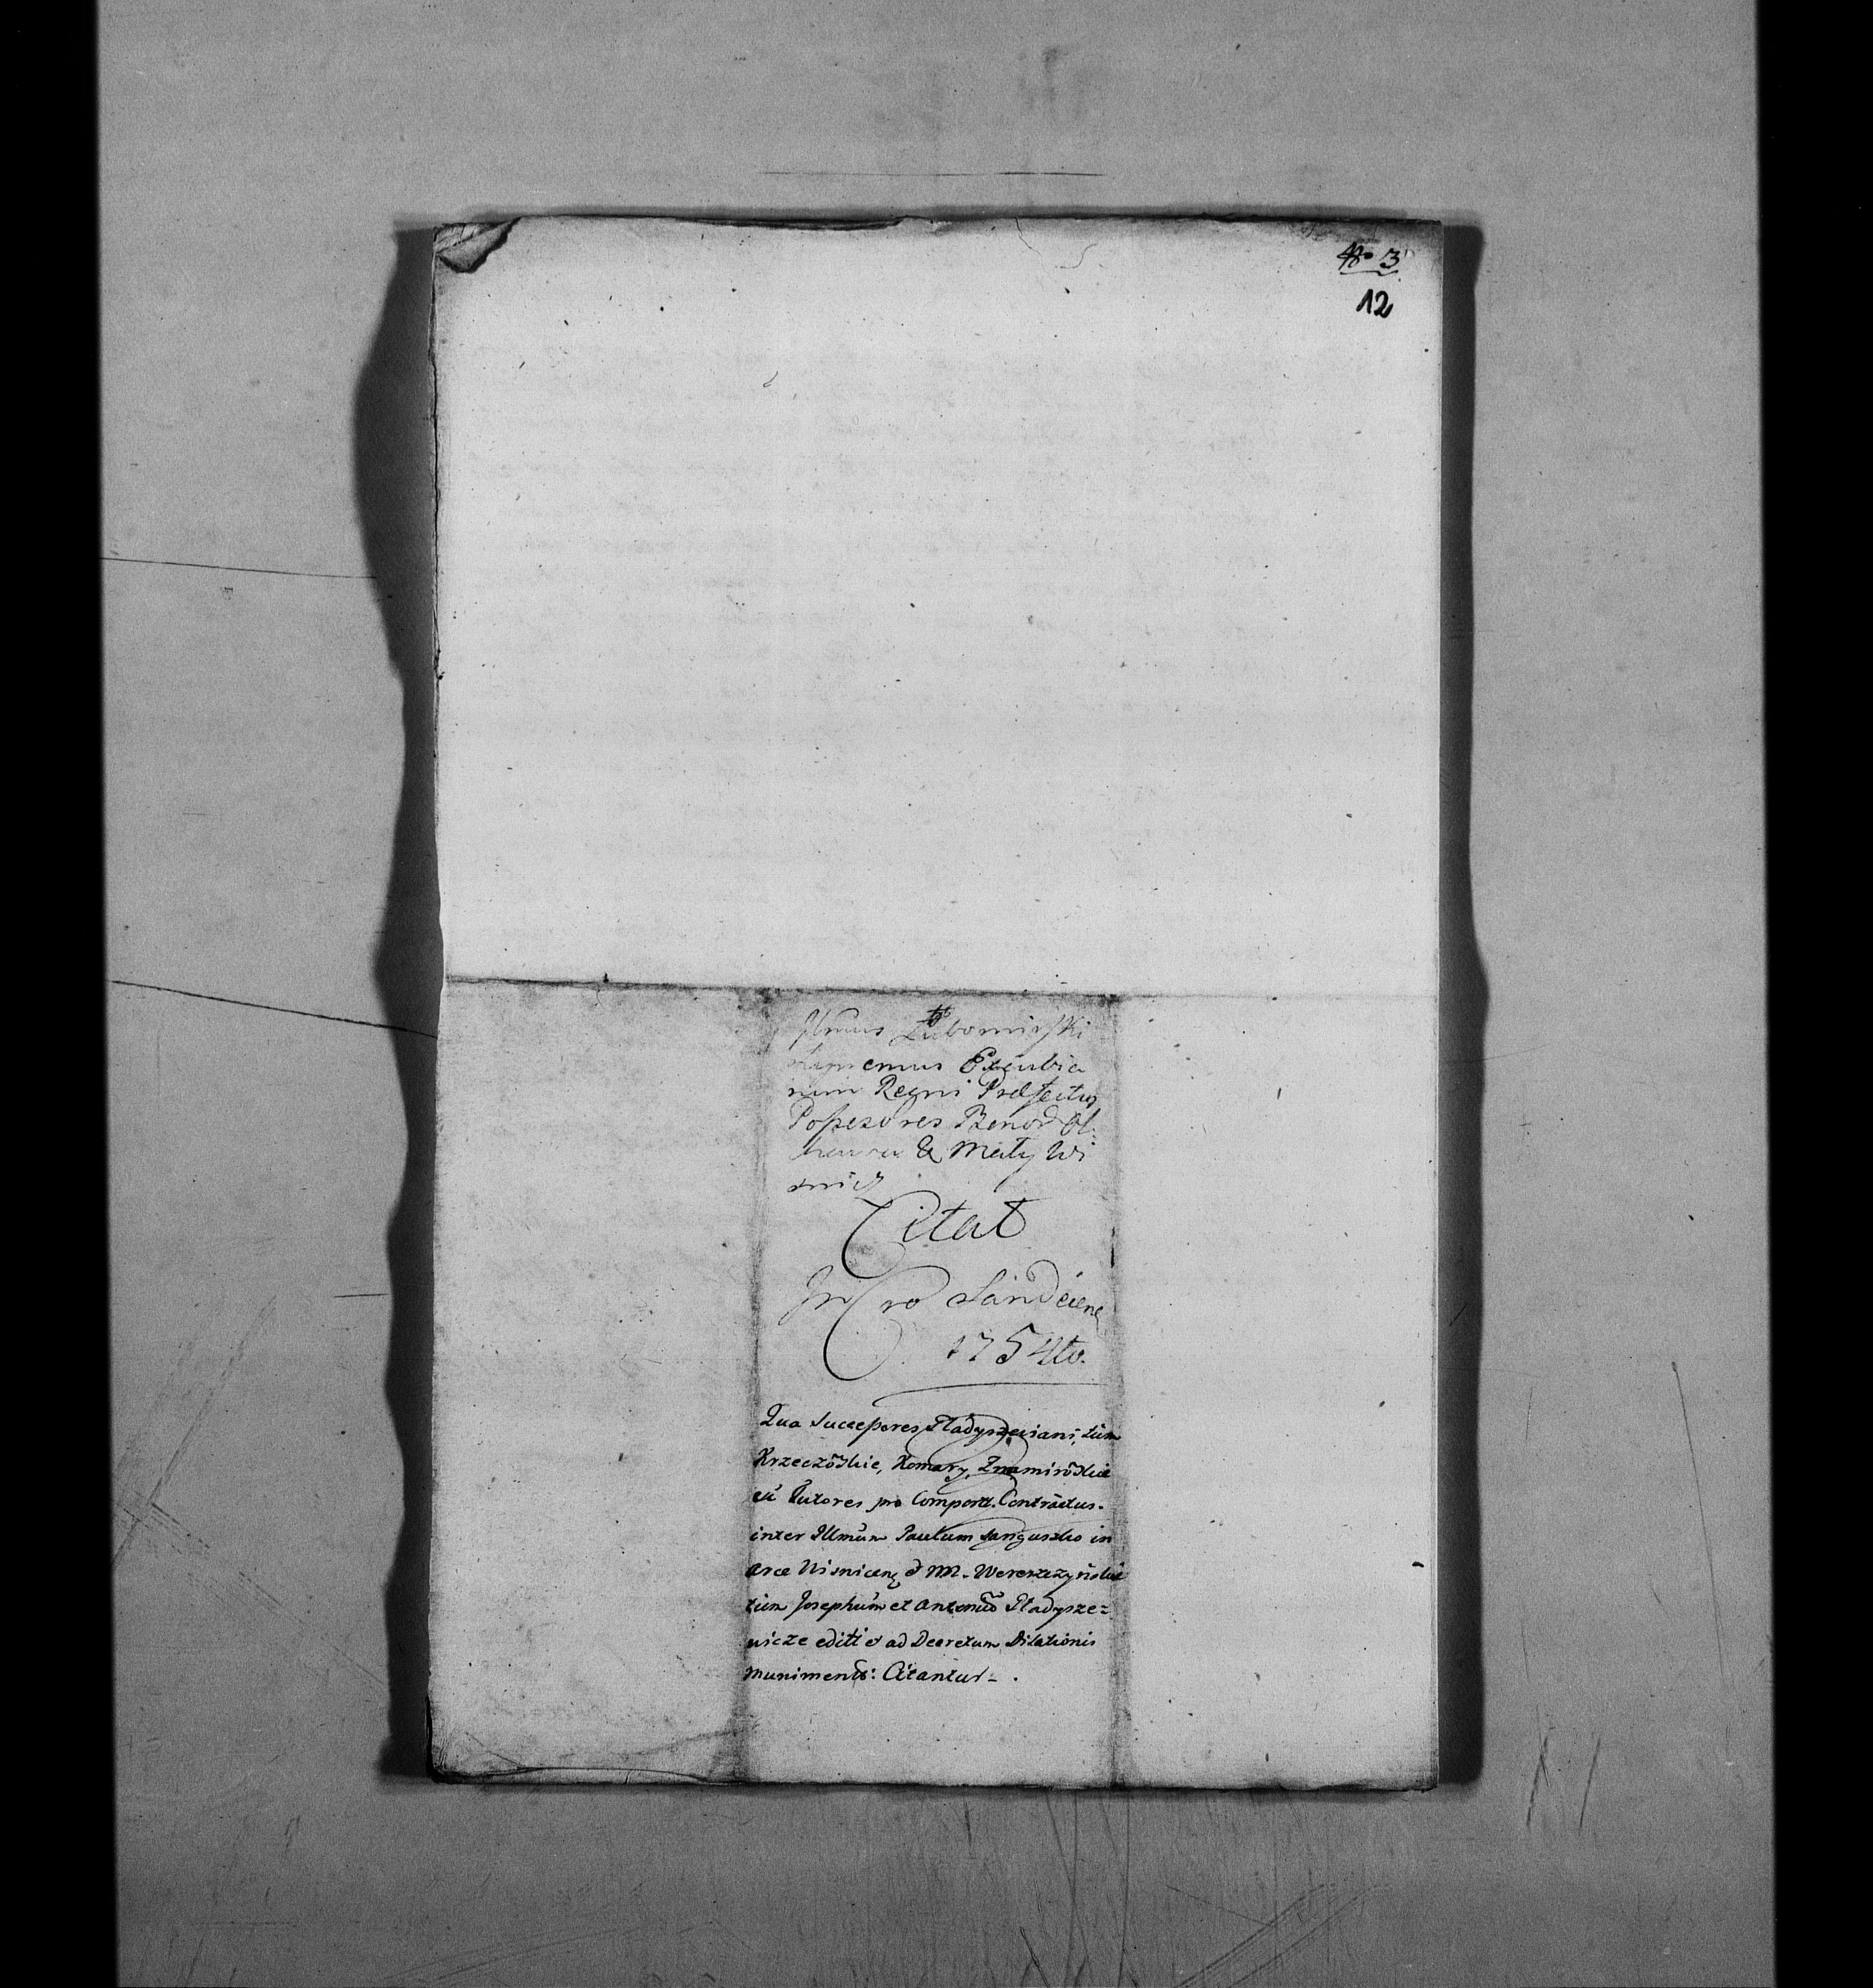 No 3
12
Illmus Lubomirski
Supremus Excubia
rum Regni Præfectus
Possesores Bonor Ol
& Mały Wi
snicz
Citat
In Cro Sandecen
1754to.
Qua Successores Gładyszeviani, tum
Krzeczõskie, Komary, Znamirõskie
et Tutores pro Comport. Contractus.
inter Illmum Paulum Sanguszko in
arce Visnicen et M. Wereszczyńskie
tum Josephum et Antonium Gładysze=
wicze editi et ad Decretum Dilationis
muniment: Citantur_.